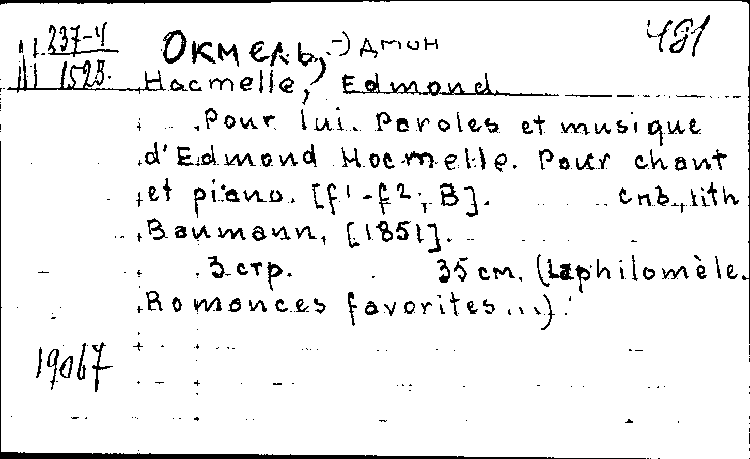 М 237-4 Окмель, Эдмон 481
1523. Hacmelle, Edmond
Pour lui. Paroles et musique
d'Edmond Hocmelle. Pour chant
et piano. [f¹-f²; B]. СПБ, lith
Baumann, [1851].
3 стр. 35 см. (La philomèle.
Romances favorites...)
19067